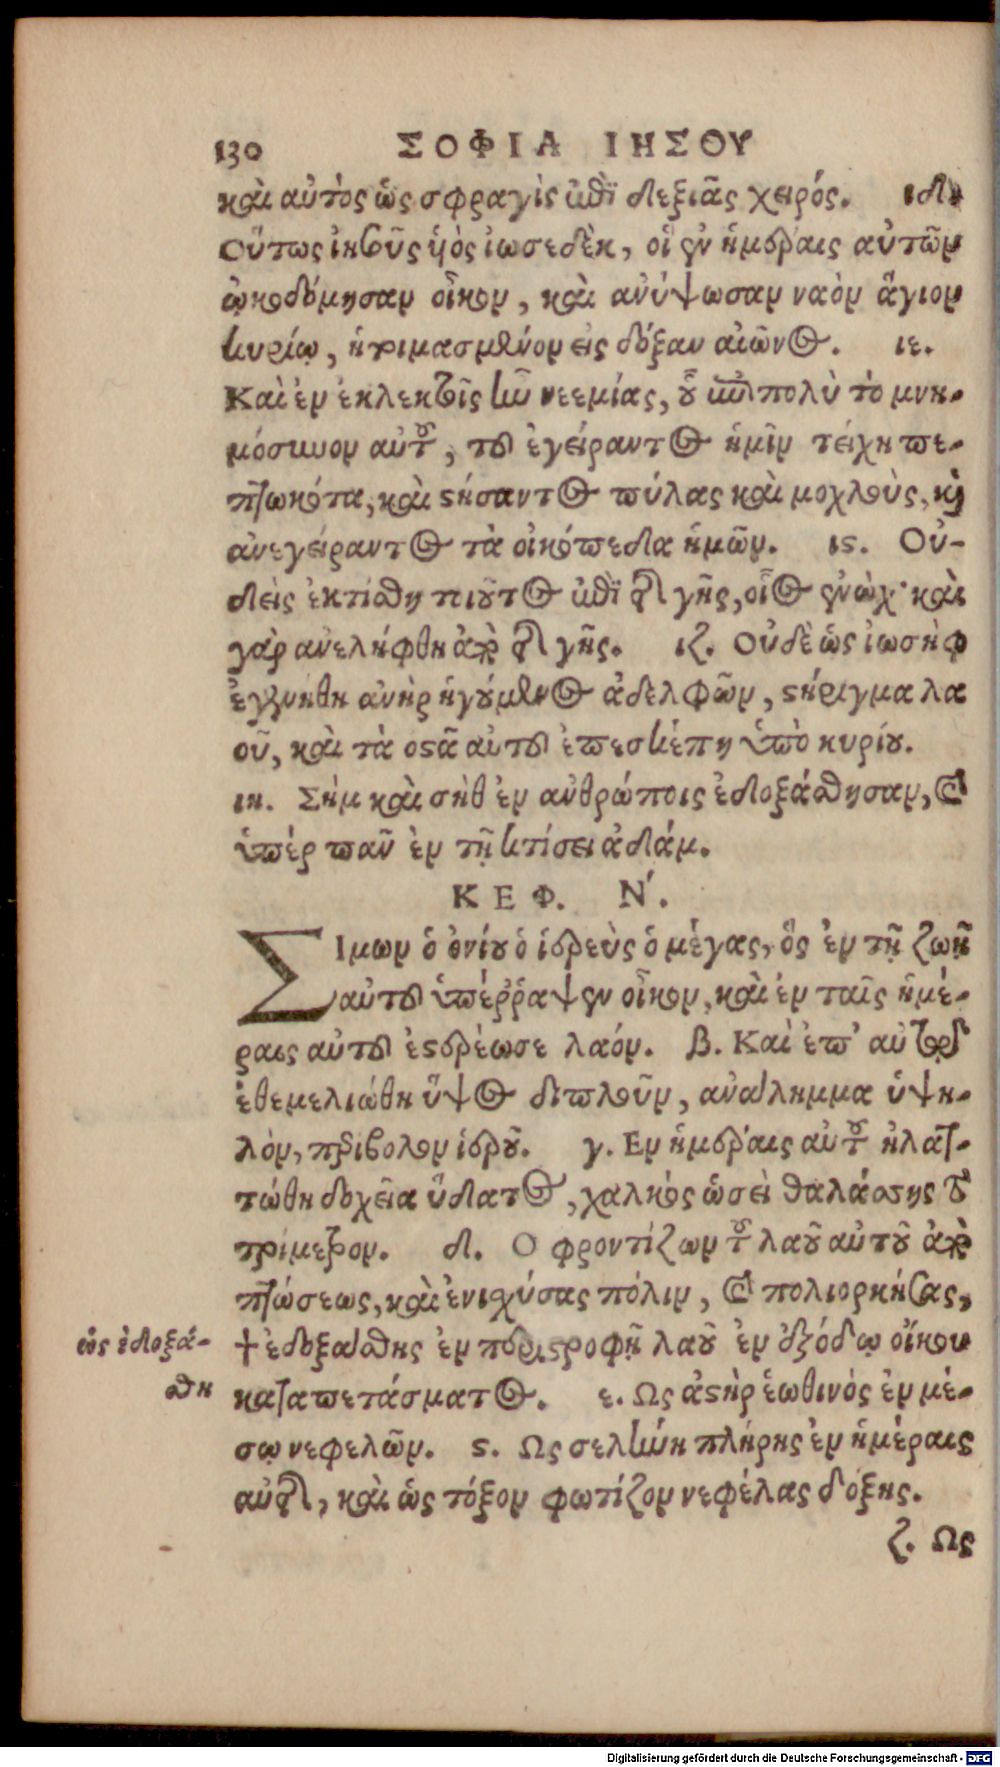 130 ΣΟΦΙΑ ΙΗΣΟΥ
καὶ αὐτὸς ὡς σφραγὶς ἐπὶ δεξιᾶς χειρός. ιδ.
Οὕτως ἰησοῦς ὑὸς ἰωσεδὲκ, οἳ ἐν ἡμέραις αὐτῶν
ᾠκοδόμησαν οἶκον, καὶ ἀνύψωσαν ναὸν ἅγιον
κυρίῳ, ἡτοιμασμένον εἰς δόξαν αἰῶνος. ιε.
Καὶ ἐν ἐκλεκτοῖς ἦν νεεμίας, οὗ ἐπὶ πολὺ τὸ μνη-
μόσυνον αὐτοῦ, τοῦ ἐγείραντος ἡμῖν τείχη πε-
πτωκότα, καὶ στήσαντος πύλας καὶ μοχλοὺς, καὶ
ἀνεγείραντος τὰ οἰκόπεδα ἡμῶν. ις. Οὐ-
δεὶς ἐκτίσθη τοιοῦτος ἐπὶ τῆς γῆς, οἷος ἐνὼχ· καὶ
γὰρ ἀνελήφθη ἀπὸ τῆς γῆς. ιζ. Οὐδὲ ὡς ἰωσὴφ
ἐγεννήθη ἀνὴρ ἡγούμενος ἀδελφῶν, στήριγμα λα
οῦ, καὶ τὰ ὀστᾶ αὐτοῦ ἐπεσκέπη ὑπὸ κυρίου.
ιη. Σὴμ καὶ σὴθ ἐν ἀνθρώποις ἐδοξάσθησαν, καὶ
ὑπὲρ πᾶν ἐν τῇ κτίσει ἀδάμ.
ΚΕΦ. Ν´.
Σίμων ὁ ὀνίου ὁ ἱερεὺς ὁ μέγας, ὃς ἐν τῇ ζωῇ
αὐτοῦ ὑπέῤῥαψεν οἶκον, καὶ ἐν ταῖς ἡμέ-
ραις αὐτοῦ ἐστερέωσε λαόν. β. Καὶ ἐπ’ αὐτοῦ
ἐθεμελιώθη ὕψος διπλοῦν, ἀνάλημμα ὑψη-
λὸν, περίβολον ἱεροῦ. γ. Εν ἡμέραις αὐτοῦ ἠλατ-
τώθη δοχεῖα ὕδατος, χαλκὸς ὡσεὶ θαλάσσης τὸ
τρίμετρον. δ. Ο φροντίζων τοῦ λαοῦ αὐτοῦ ἀπὸ
πτώσεως, καὶ ἐνισχύσας πόλιν, καὶ πολιορκήσας,
ὡς ἐδοξά-
σθη
† ἐδοξάσθης ἐν περιστροφῇ λαοῦ ἐν ἐξόδῳ οἴκου
καταπετάσματος. ε. Ως ἀστὴρ ἑωθινὸς ἐν μέ-
σῳ νεφελῶν. ς. Ως σελήνη πλήρης ἐν ἡμέραις
αὐτῆς, καὶ ὡς τόξον φωτίζον νεφέλας δόξης.
ζ. Ως
Digitalisierung gefördert durch die Deutsche Forschungsgemeinschaft - DFG